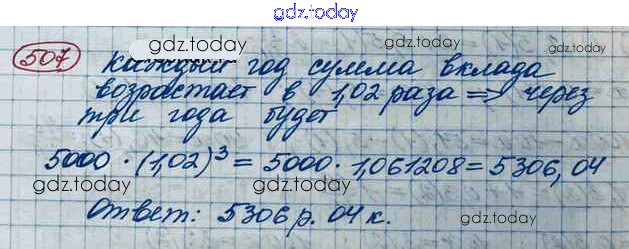 gdz.today
507
gdz.today
gdz.today
Каждый год сумма вклада
возрастает в 1,02 раза => через
три года будет
5000 · (1,02)³ = 5000 · 1,061208 = 5306,04
gdz.today
gdz.today
Ответ: 5306 р. 04 к.
gdz.today